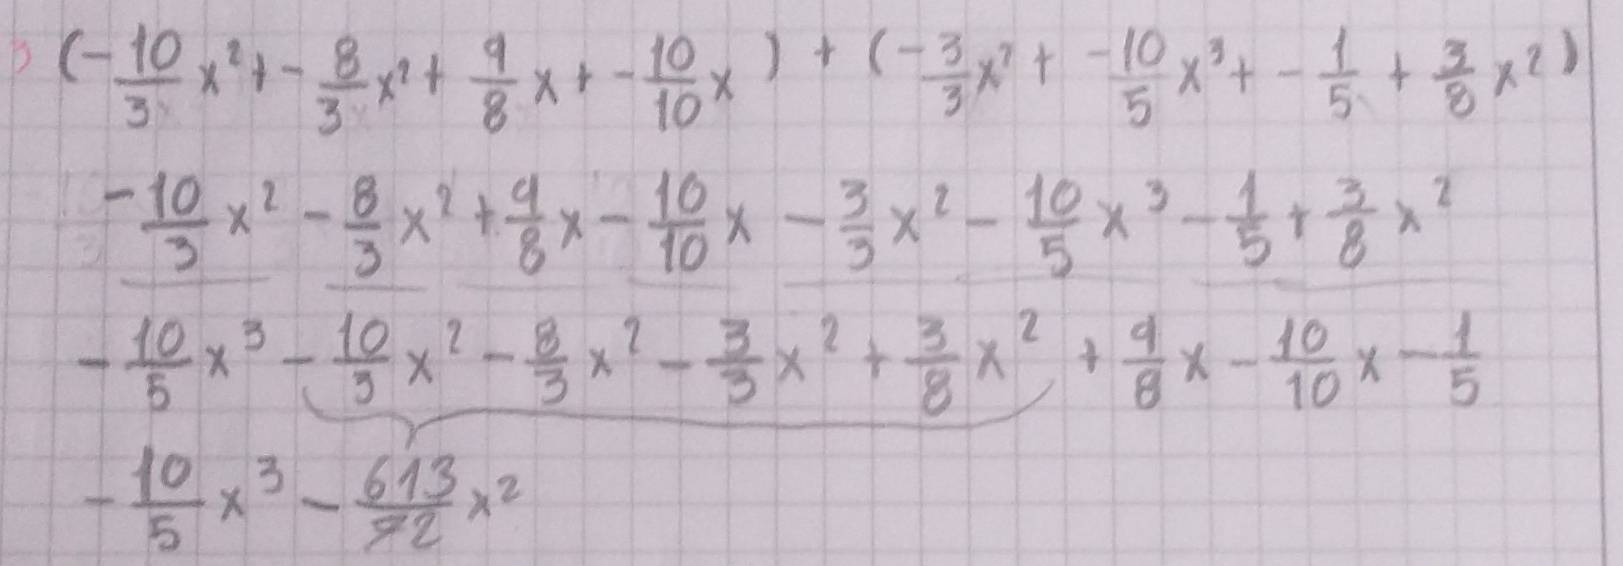 (-10/3 x² + -8/3 x² + 9/8 x + -10/10 x) + (-3/3 x² + -10/5 x³ + -1/5 + 3/8 x²)
-10/3 x² - 8/3 x² + 9/8 x - 10/10 x - 3/3 x² - 10/5 x³ - 1/5 + 3/8 x²
-10/5 x³ - 10/3 x² - 8/3 x² - 3/3 x² + 3/8 x² + 9/8 x - 10/10 x - 1/5
-10/5 x³ - 613/72 x²